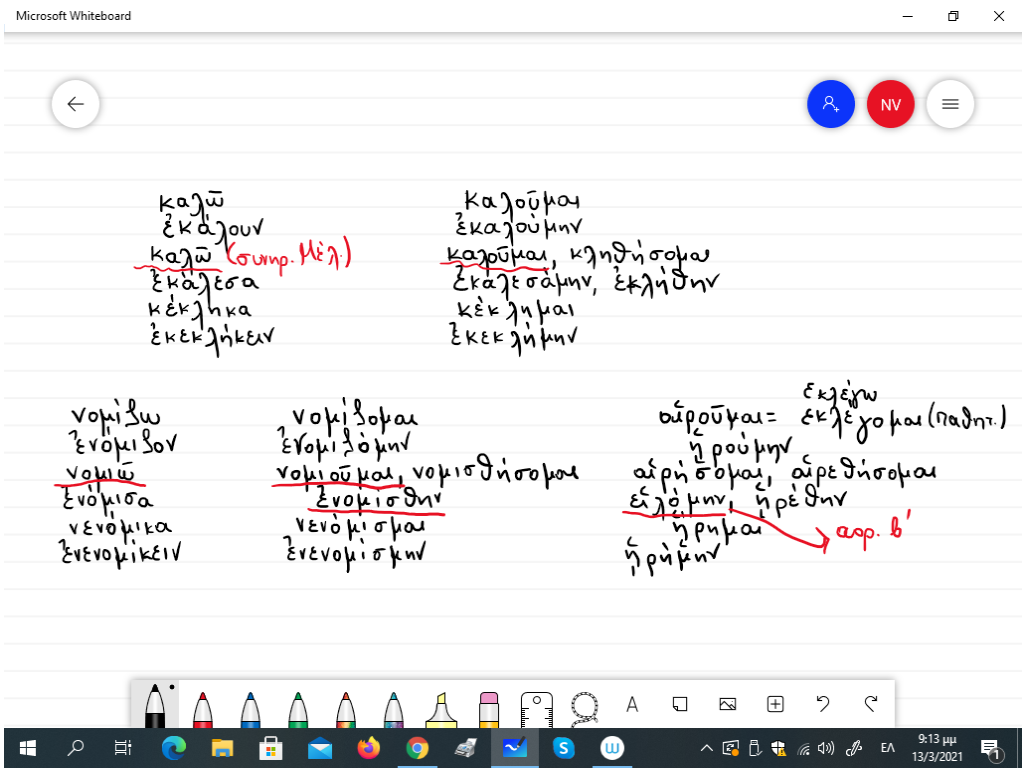 Microsoft Whiteboard
NV
καλῶ
ἐκάλουν
καλῶ (συνηρ. Μέλ.)
ἐκάλεσα
κέκληκα
ἐκεκλήκειν
καλοῦμαι
ἐκαλούμην
καλοῦμαι, κληθήσομαι
ἐκαλεσάμην, ἐκλήθην
κέκλημαι
ἐκεκλήμην
νομίζω
ἐνόμιζον
νομιῶ
ἐνόμισα
νενόμικα
ἐνενομίκειν
νομίζομαι
ἐνομιζόμην
νομιοῦμαι, νομισθήσομαι
ἐνομίσθην
νενόμισμαι
ἐνενομίσμην
ἐκλέγω
αἱροῦμαι = ἐκλέγομαι (παθητ.)
ᾑρούμην
αἱρήσομαι, αἱρεθήσομαι
εἱλόμην, ᾑρέθην
ᾕρημαι
αορ. β'
ᾑρήμην
A
ΕΛ
9:13 μμ
13/3/2021
1